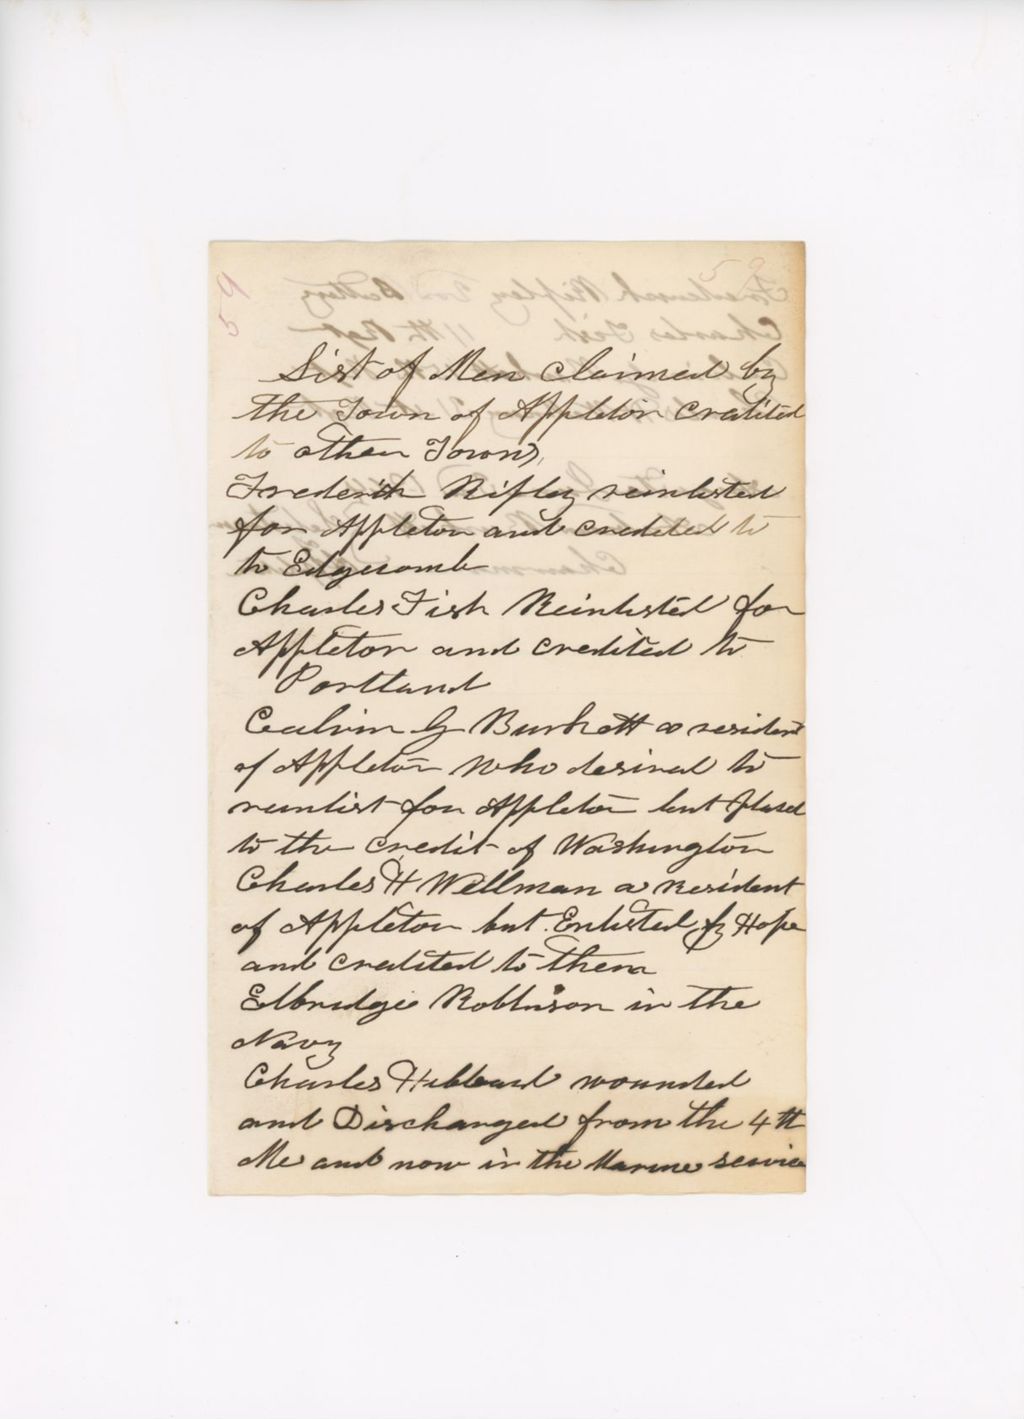 List of Men claimed by
the Town of Appleton credited
to other Towns,
Frederick Ripley reinlisted
for Appleton and credited to
to Edgecomb
Charles Fish Reinlisted for
Appleton and credited to
Portland
Calvin G Burkett a resident
of Appleton who desired to
reinlist for Appleton but placed
to the credit of Washington
Charles H Wellman a Resident
of Appleton but Enlisted for Hope
and credited to them
Elbridge Robinson in the
Navy
Charles Hibbard wounded
and Discharged from the 4th
Me and now in the Marine service